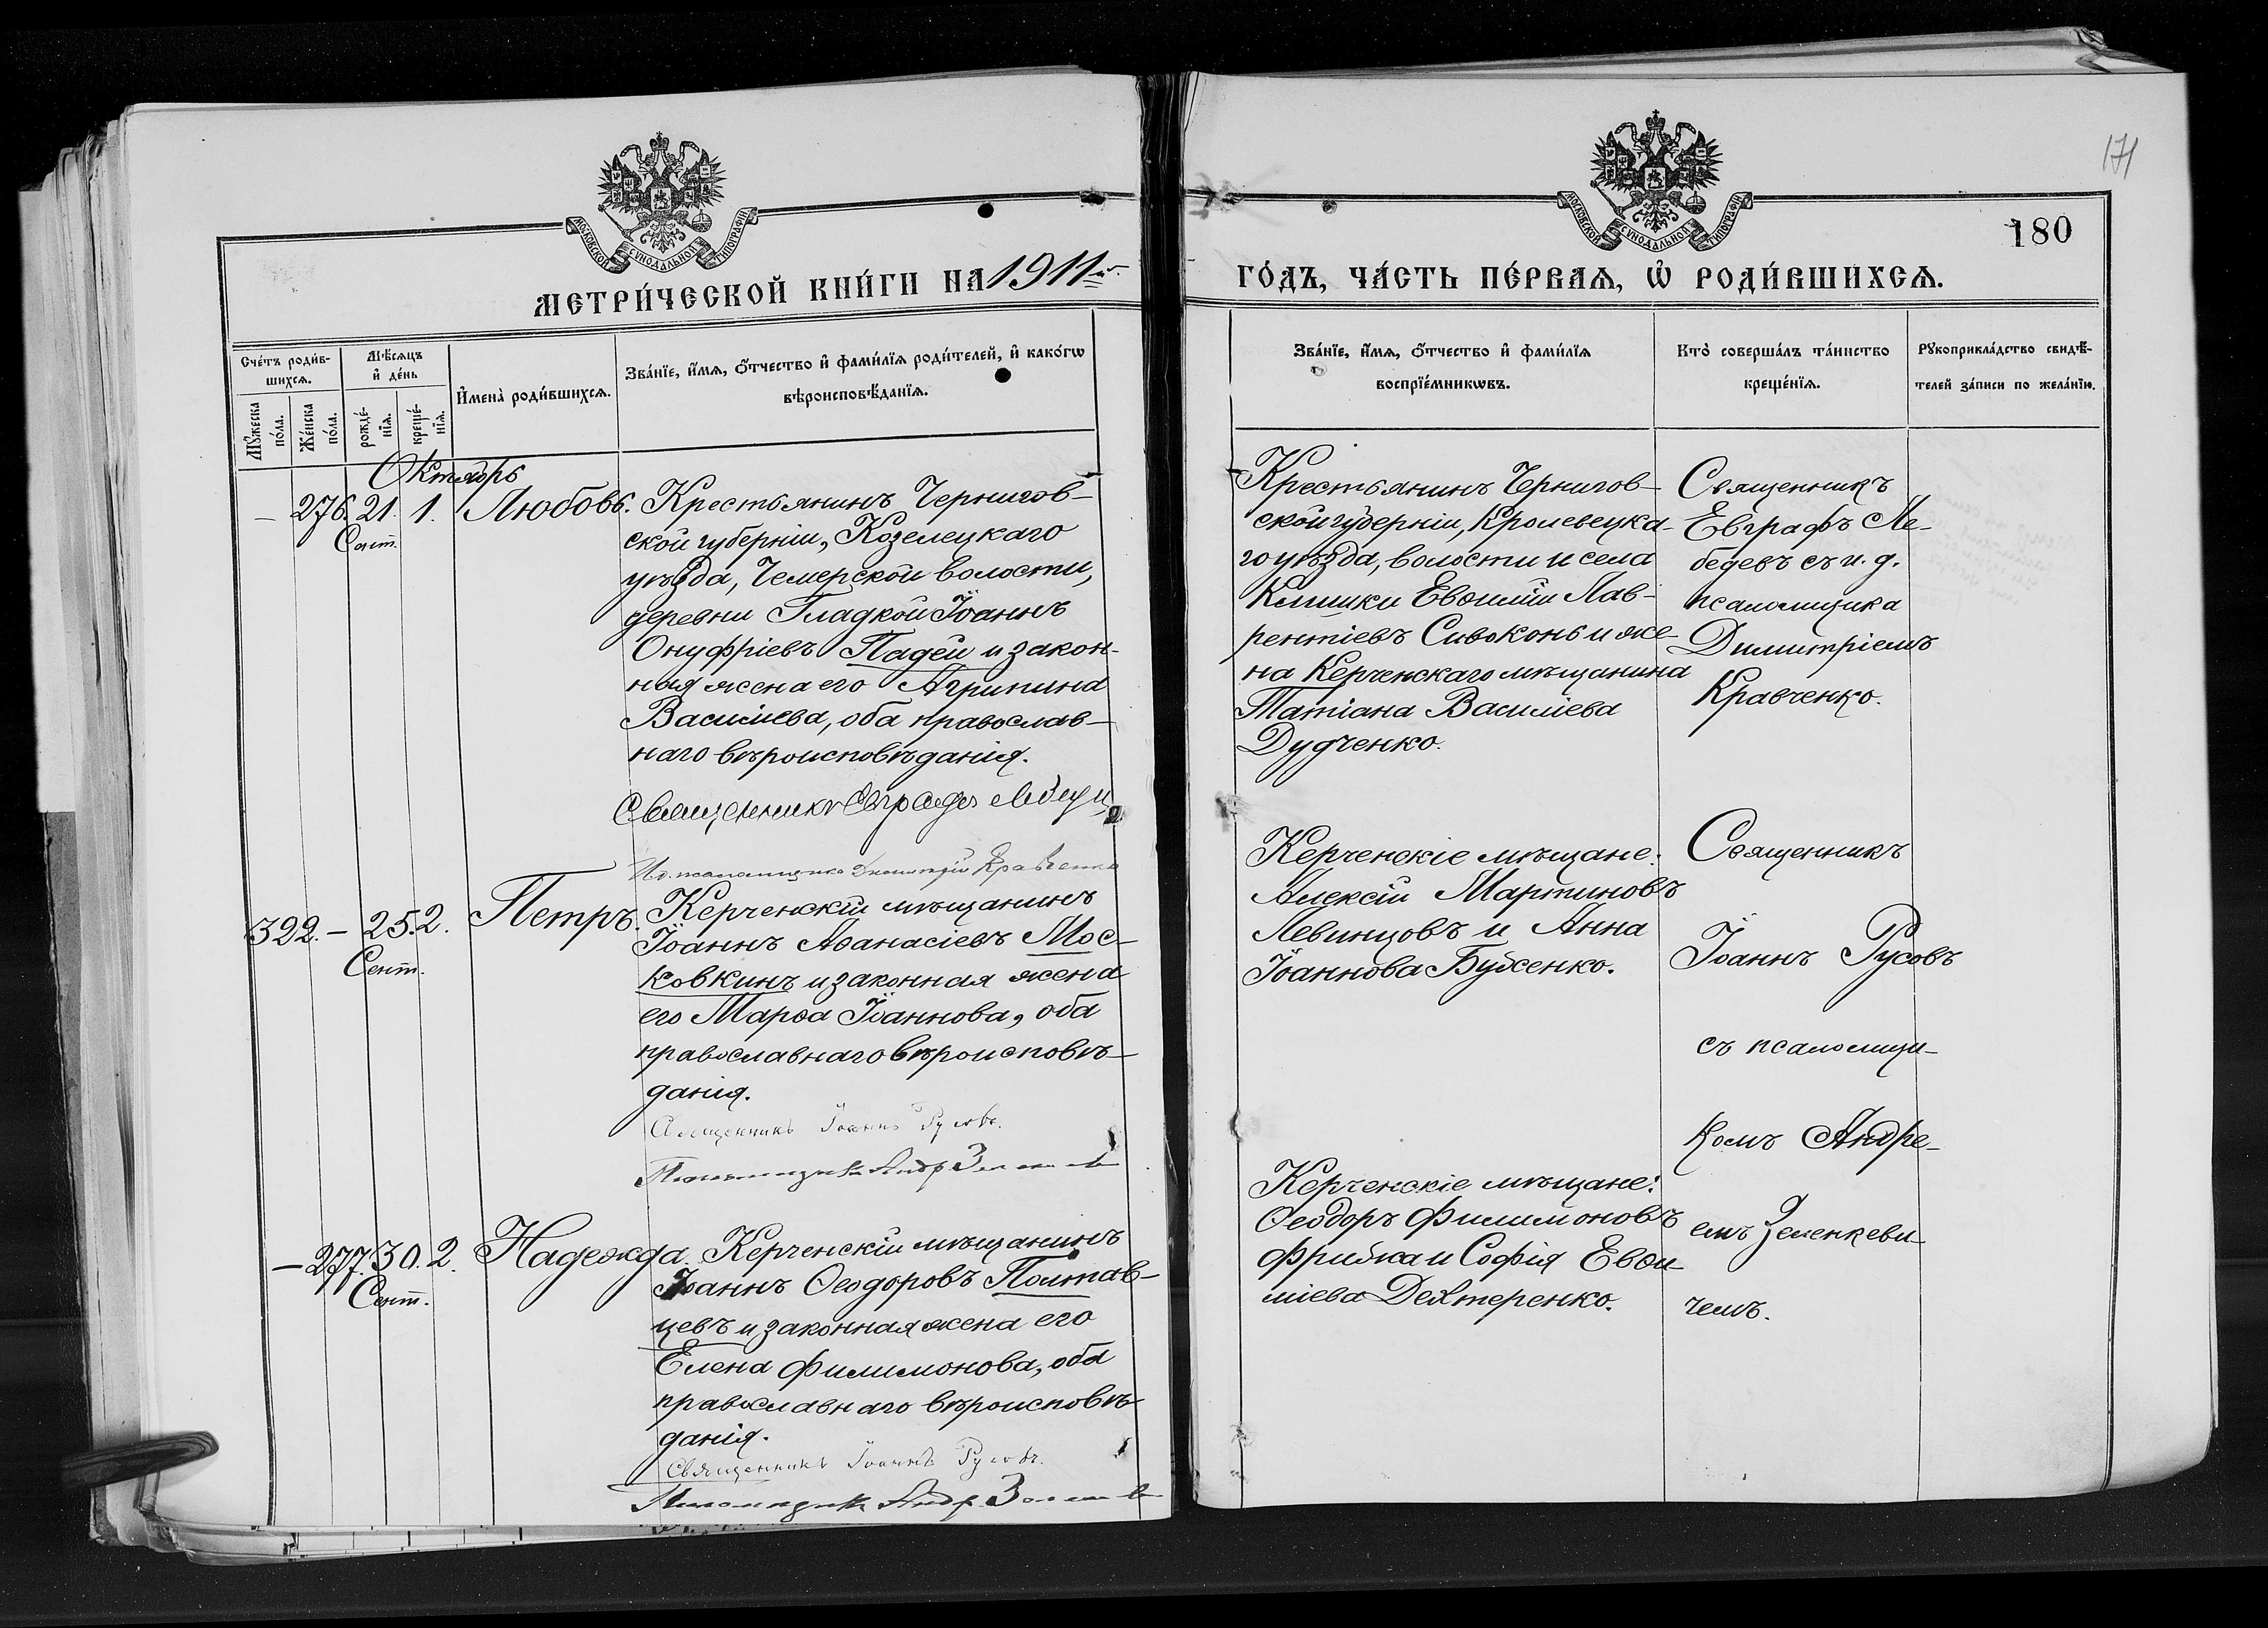 171
180
МОСКОВСКОЙ СѴНОДАЛЬНОЙ ТИПОГРАФІИ
МОСКОВСКОЙ СѴНОДАЛЬНОЙ ТИПОГРАФІИ
МЕТРИ́ЧЕСКОЙ КНИ́ГИ НА 1911 й
ГО́ДЪ, ЧА́СТЬ ПЕ́РВАѦ, Ѽ РОДИ́ВШИХСѦ.
Сче́тъ роди́в-
шихсѧ.
Мꙋ́жеска
по́ла.
Же́нска
по́ла.
Мѣ́сѧцъ
и҆ де́нь
рожде́-
нїѧ.
креще́-
нїѧ.
И҆мена̀ роди́вшихсѧ.
Зва́нїе, и҆́мѧ, ѻ҆́тчество и҆ фами́лїѧ роди́телей, и҆ како́гѡ
вѣроисповѣ́данїѧ.
Зва́нїе, и҆́мѧ, ѻ҆́тчество и҆ фами́лїѧ
воспрїе́мникѡвъ.
Кто̀ соверша́лъ та́инство
креще́нїѧ.
Рꙋкоприкла́дство свидѣ́-
телей за́писи по жела́нїю.
Октябрь
– 276. 21. 1. Любовь.
Сент.
Крестьянинъ Чернигов-
ской губерніи, Козелецкаго
уѣзда, Чемерской волости,
деревни Гладкой Іоаннъ
Онуфріевъ Падей и закон-
ная жена его Агрипина
Василіева, оба православ-
наго вѣроисповѣданія.
Священникъ Евграфъ Лебедевъ
И.д. псаломщика Димитрій Кравченко
Крестьянинъ Чернигов-
ской губерніи, Кролевецка-
го уѣзда, волости и села
Клишки Евѳимій Лав-
рентіевъ Сивоконь и же-
на Керченскаго мѣщанина
Татіана Василіева
Дудченко.
Священникъ
Евграфъ Ле-
бедевъ съ и. д.
псаломщика
Димитріемъ
Кравченко.
322. – 25. 2. Петръ.
Сент.
Керченскій мѣщанинъ
Іоаннъ Аѳанасіевъ Мос-
ковкинъ и законная жена
его Марѳа Іоаннова, оба
православнаго вѣроисповѣ-
данія.
Священникъ Іоаннъ Русовъ.
Псаломщикъ Андр. Зеленкевич
Керченскіе мѣщане:
Алексій Мартиновъ
Левинцовъ и Анна
Іоаннова Буженко.
Священникъ
Іоаннъ Русовъ
съ псаломщи-
комъ Андре-
емъ Зеленкеви-
чемъ.
– 277. 30. 2. Надежда.
Сент.
Керченскій мѣщанинъ
Іоаннъ Ѳеодоровъ Полтав-
цевъ и законная жена его
Елена Филимонова, оба
православнаго вѣроисповѣ-
данія.
Священникъ Іоаннъ Русовъ.
Псаломщикъ Андр. Зеленкевич
Керченскіе мѣщане:
Ѳеодоръ Филимоновъ
Фрибка и Софія Евѳи-
міева Дехтеренко.